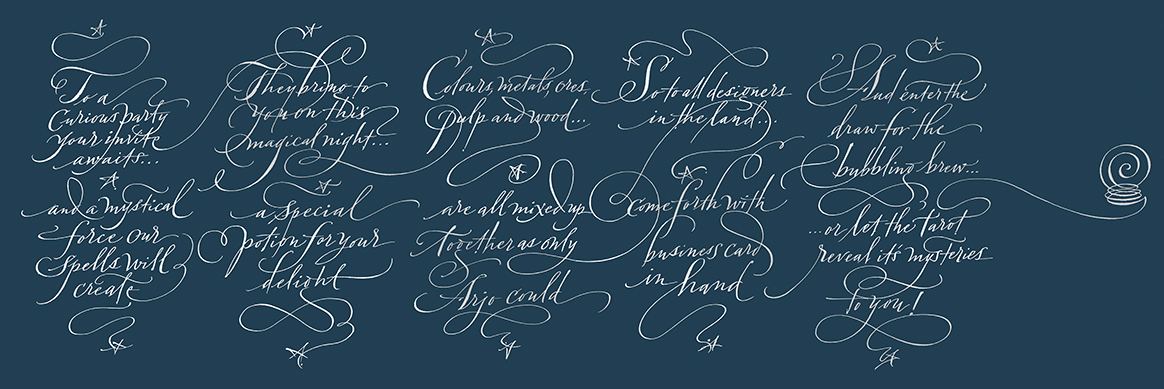 To a
Curious party
your invite
awaits...
and a mystical
force our
spells will
create
They bring to
you on this
magical night...
a special
potion for your
delight
Colours, metals, ores,
pulp and wood...
are all mixed up
together as only
Arjo could
So to all designers
in the land...
come forth with
business card
in hand
And enter the
draw for the
bubbling brew...
...or let the Tarot
reveal it's mysteries
to you!